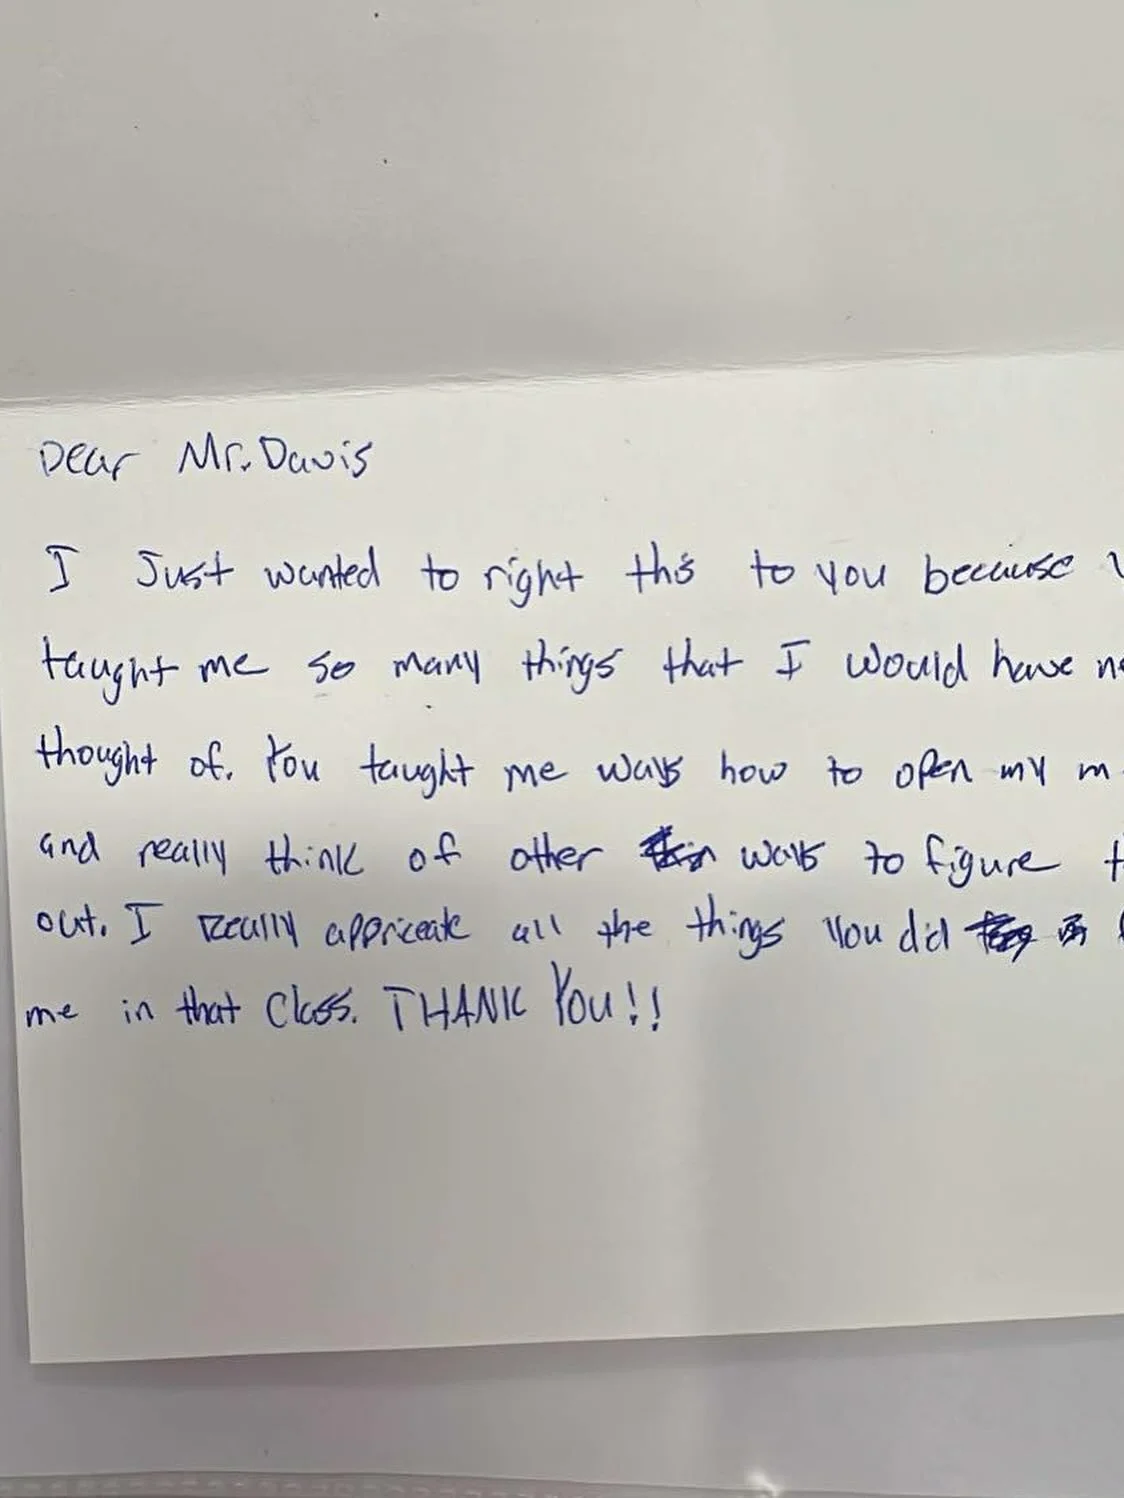 Dear Mr. Davis
I Just wanted to right this to you because
taught me so many things that I would have
thought of. You taught me ways how to open my
and really think of other ways to figure
out. I really appriceate all the things you did
me in that class. THANK YOU!!